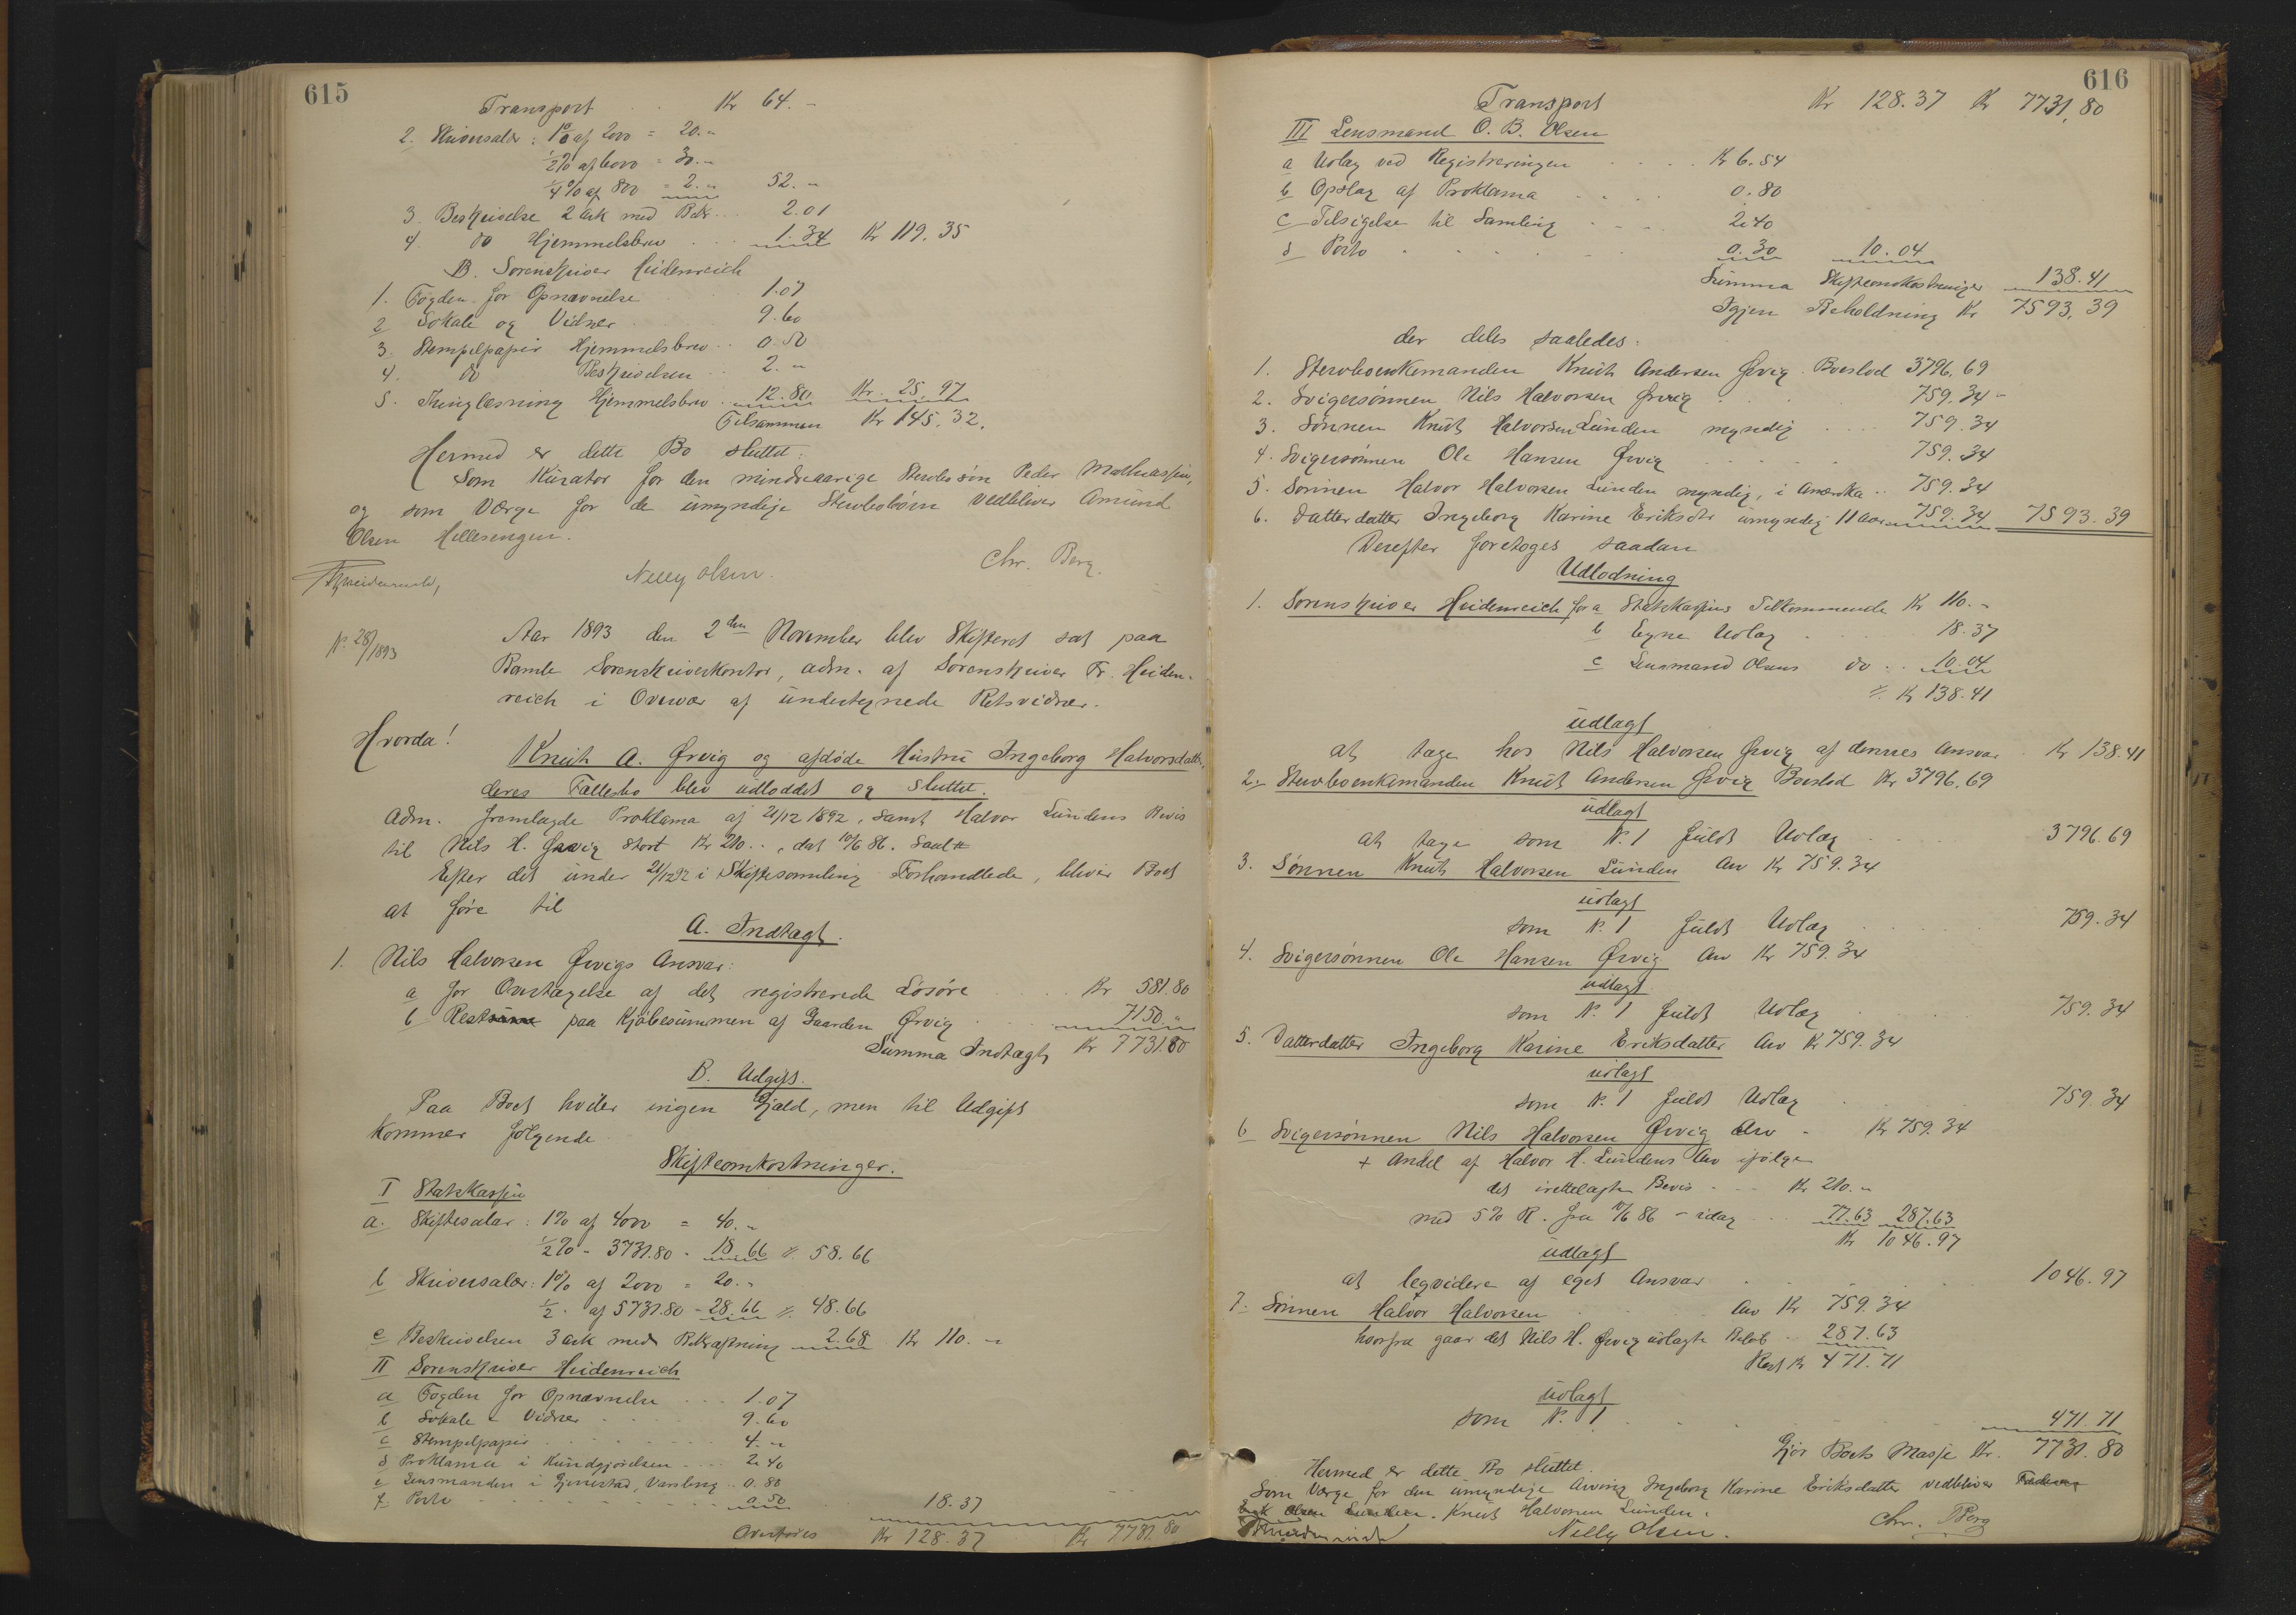 615
Transport . . Kr 64.-
2. Skriversalær: 1% af 2000 = 20.-
½% af 6000 = 30.-
¼% af 800 = 2.- 52.-
3. Beskrivelse 2 Ark med Bekr. . . 2.01
4. do Hjemmelsbrev . . . 1.34 Kr 119.35
B. Sorenskriver Heidenreich
1. Fogden for Opnævnelse 1.07
2 Lokale og Vidner . . 9.60
3. Stempelpapir Hjemmelsbrev . . 0.50
4. do Beskrivelsen . . 2.-
5. Thinglæsning Hjemmelsbrev . 12.80 Kr. 25.97
Tilsammen Kr 145.32.
Hermed er dette Bo sluttet:
Som Kurator for den mindreaarige Stervbosøn Peder Mathiassen,
og som Værge for de umyndige Stervbobørn vedbliver Amund
Olsen Hellesengen.
Fr Heidenreich, Nelly Olsen. Chr. Berg.
N. 28/1893
Aar 1893 den 2den November blev Skifteret sat paa
Bamle Sorenskriverkontor, adm. af Sorenskriver Fr. Heiden-
reich i Overvær af undertegnede Retsvidner.
Hvorda!
Knut A. Ørvig og afdøde Hustru Ingeborg Halvorsdatter,
deres Fællesbo blev udloddet og sluttet.
Adm. fremlagde Proklama af 21/12 1892, samt Halvor Lundens Bevis
til Nils H. Ørvig stort Kr 210.-, dat 10/6 86. Saal#
Efter det under 21/1292 i Skiftesamling Forhandlede, bliver Boet
at føre til
A. Indtægt.
1. Nils Halvorsen Ørvigs Ansvar:
a for Overtagelse af det registrerede Løsøre . . Kr 581.80
b Rest paa Kjøbesummen af Gaarden Ørvig . . 7150.-
Summa Indtægt Kr 7731.80
B. Udgift.
Paa Boet hviler ingen Gjæld, men til Udgift
kommer følgende
Skifteomkostninger.
I Statskassen
a. Skiftesalær: 1% af 4000 = 40.-
½% - 3731.80 - 18.66 ⁒ 58.66
b Skriversalær: 1% af 2000 = 20.-
½ - af 5731.80 - 28.66 ⁒ 48.66
c Beskrivelsen 3 Ark med Bekræftning 2.68 Kr 110.-
II Sorenskriver Heidenreich
a Fogden for Opnævnelse . . . 1.07
b Lokale & Vidner . . . 9.60
c Stempelpapir . . . 4.-
d Proklama i Kundgjørelsen . . . 2.40
e Lensmanden i Gjerestad, Varsling . . 0.80
f Porto . . . 0.50 18.37
Overføres Kr 128.37 Kr 7731.80
616
Transport Kr 128.37 Kr 7731.80
III Lensmand O. B. Olsen
a Udlæg ved Registreringen . . . . Kr 6.54
b Opslag af Proklama . . . . 0.80
c Tilsigelse til Samling . . . . 2.40
d Porto . . . . 0.30 10.04
Summa Skifteomkostninger 138.41
Igjen Beholdning Kr 7593.39
der deles saaledes:
1. Stervboenkemanden Knut Andersen Ørvig Boeslod 3796.69
2. Svigersønnen Nils Halvorsen Ørvig . . 759.34
3. Sønnen Knut Halvorsen Lunden myndig . . . 759.34
4. Svigersønnen Ole Hansen Ørvig . . . . 759.34
5. Sønnen Halvor Halvorsen Lunden myndig, i Amerika . . 759.34
6. Datterdatter Ingeborg Karine Eriksdtr umyndig 11 aar 759.34 7593.39
Derefter foretoges saadan
Udlodning
1. Sorenskriver Heidenreich for a Statskassens Tilkommende Kr 110.-
b Egne Udlæg . . . 18.37
c Lensmand Olsens do . . 10.04
⁒ Kr 138.41
udlagt
at tage hos Nils Halvorsen Ørvig af dennes Ansvar . Kr 138.41
2. Stervboenkemanden Knut Andersen Ørvig Boeslod Kr 3796.69
udlagt
at tage som N. 1 fuldt Udlæg . . . 3796.69
3. Sønnen Knut Halvorsen Lunden Arv Kr 759.34
udlagt
som N. 1 fuldt Udlæg . . . 759.34
4. Svigersønnen Ole Hansen Ørvig Arv Kr 759.34
udlagt
som N. 1 fuldt Udlæg . . . 759.34
5. Datterdatter Ingeborg Karine Eriksdatter Arv Kr 759.34
udlagt
som N. 1 fuldt Udlæg . . . 759.34
6 Svigersønnen Nils Halvorsen Ørvig Arv - Kr 759.34
+ Andel af Halvor H. Lundens Arv ifølge
det irettelagte Bevis . - . Kr 210.-
med 5% R. fra 10/6 86 - idag . . . 77.63 287.63
Kr 1046.97
udlagt
at leqvidere af eget Ansvar . . . 1046.97
7. Sønnen Halvor Halvorsen . . Arv Kr 759.34
hvorfra gaar det Nils H. Ørvig udlagte Beløb . . 287.63
Rest Kr 471.71
udlagt
som N. 1 . . . 471.71
Gjør Boets Masse Kr. 7731.80
Hermed er dette Bo sluttet.
Som Værge for den umyndige Arving Ingeborg Karine Eriksdatter vedbliver Faderen
Erik Olsen Lunden. Knut Halvorsen Lunden.
Fr Heidenreich Nelly Olsen. Chr. Berg